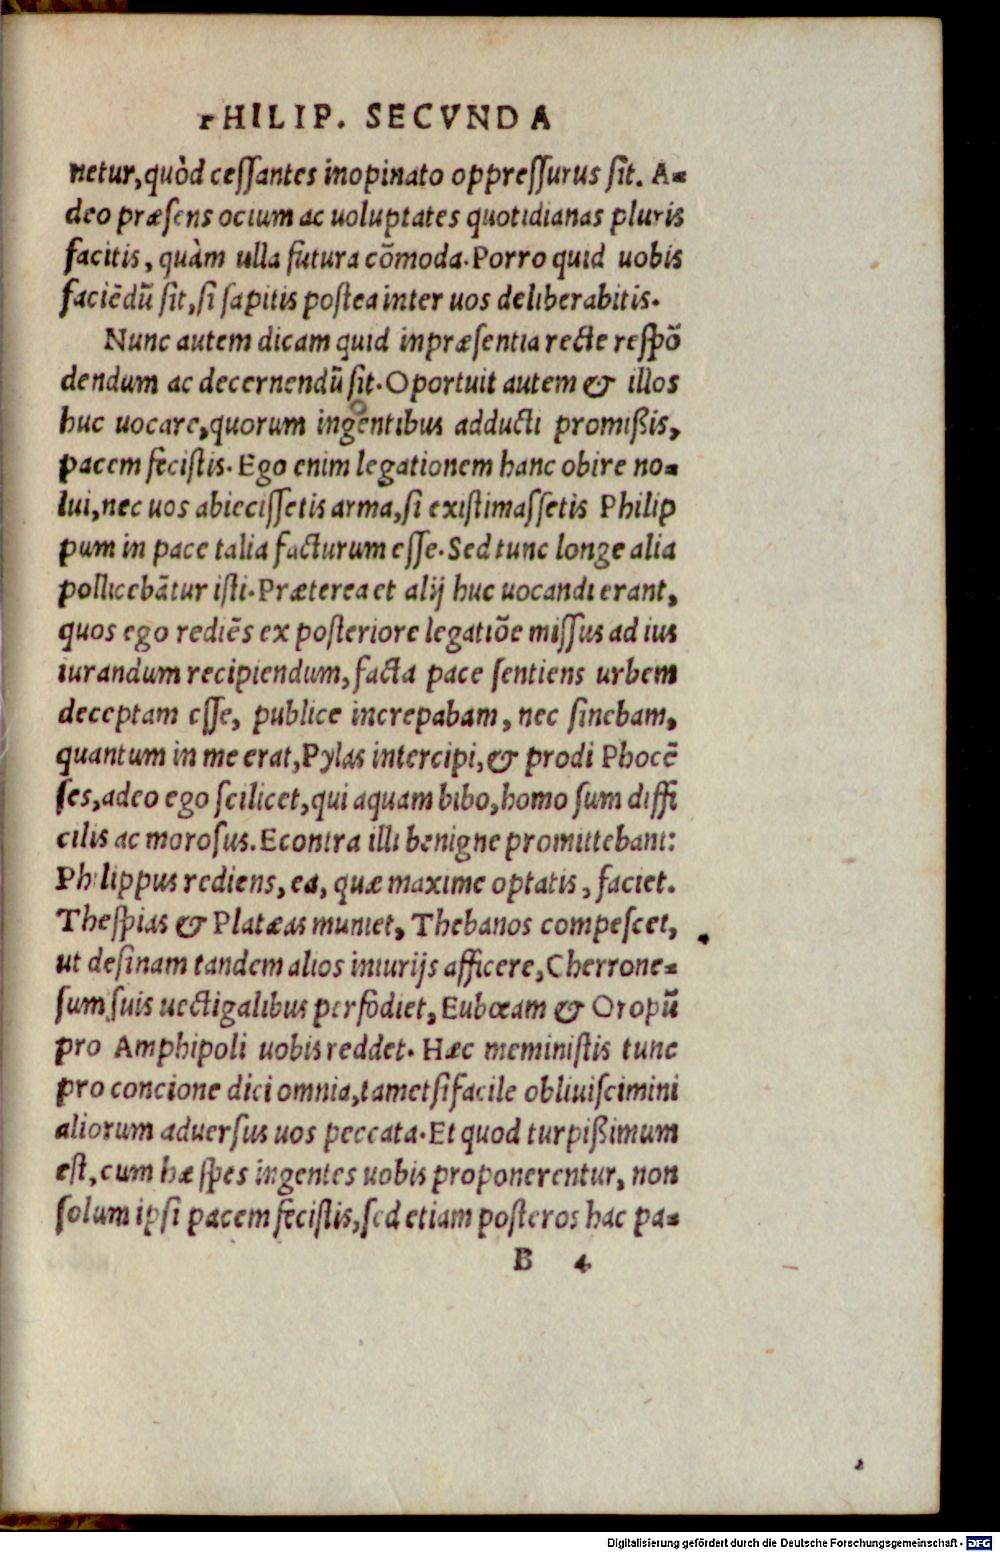 PHILIP. SECVNDA
netur, quòd ceſſantes inopinato oppreſſurus ſit. A-
deo præſens ocium ac uoluptates quotidianas pluris
facitis, quàm ulla futura cōmoda. Porro quid uobis
faciēdū ſit, ſi ſapitis poſtea inter uos deliberabitis.
Nunc autem dicam quid inpræſentia recte reſpō
dendum ac decernendū ſit. Oportuit autem & illos
huc uocare, quorum ingentibus adducti promißis,
pacem feciſtis. Ego enim legationem hanc obire no-
lui, nec uos abieciſſetis arma, ſi exiſtimaſſetis Philip
pum in pace talia facturum eſſe. Sed tunc longe alia
pollicebātur iſti. Præterea et alij huc uocandi erant,
quos ego rediēs ex poſteriore legatiōe miſſus ad ius
iurandum recipiendum, facta pace ſentiens urbem
deceptam eſſe, publice increpabam, nec ſinebam,
quantum in me erat, Pylas intercipi, & prodi Phocē
ſes, adeo ego ſcilicet, qui aquam bibo, homo ſum diffi
cilis ac moroſus. Econtra illi benigne promittebant:
Philippus rediens, ea, quæ maxime optatis, faciet.
Theſpias & Platæas muniet, Thebanos compeſcet,
ut deſinam tandem alios iniurijs afficere, Cherrone-
ſum ſuis uectigalibus perfodiet, Eubœam & Oropū
pro Amphipoli uobis reddet. Hæc meminiſtis tunc
pro concione dici omnia, tametſi facile obliuiſcimini
aliorum aduerſus uos peccata. Et quod turpißimum
eſt, cum hæ ſpes ingentes uobis proponerentur, non
ſolum ipſi pacem feciſtis, ſed etiam poſteros hac pa-
B 4
Digitalisierung gefördert durch die Deutsche Forschungsgemeinschaft - DFG